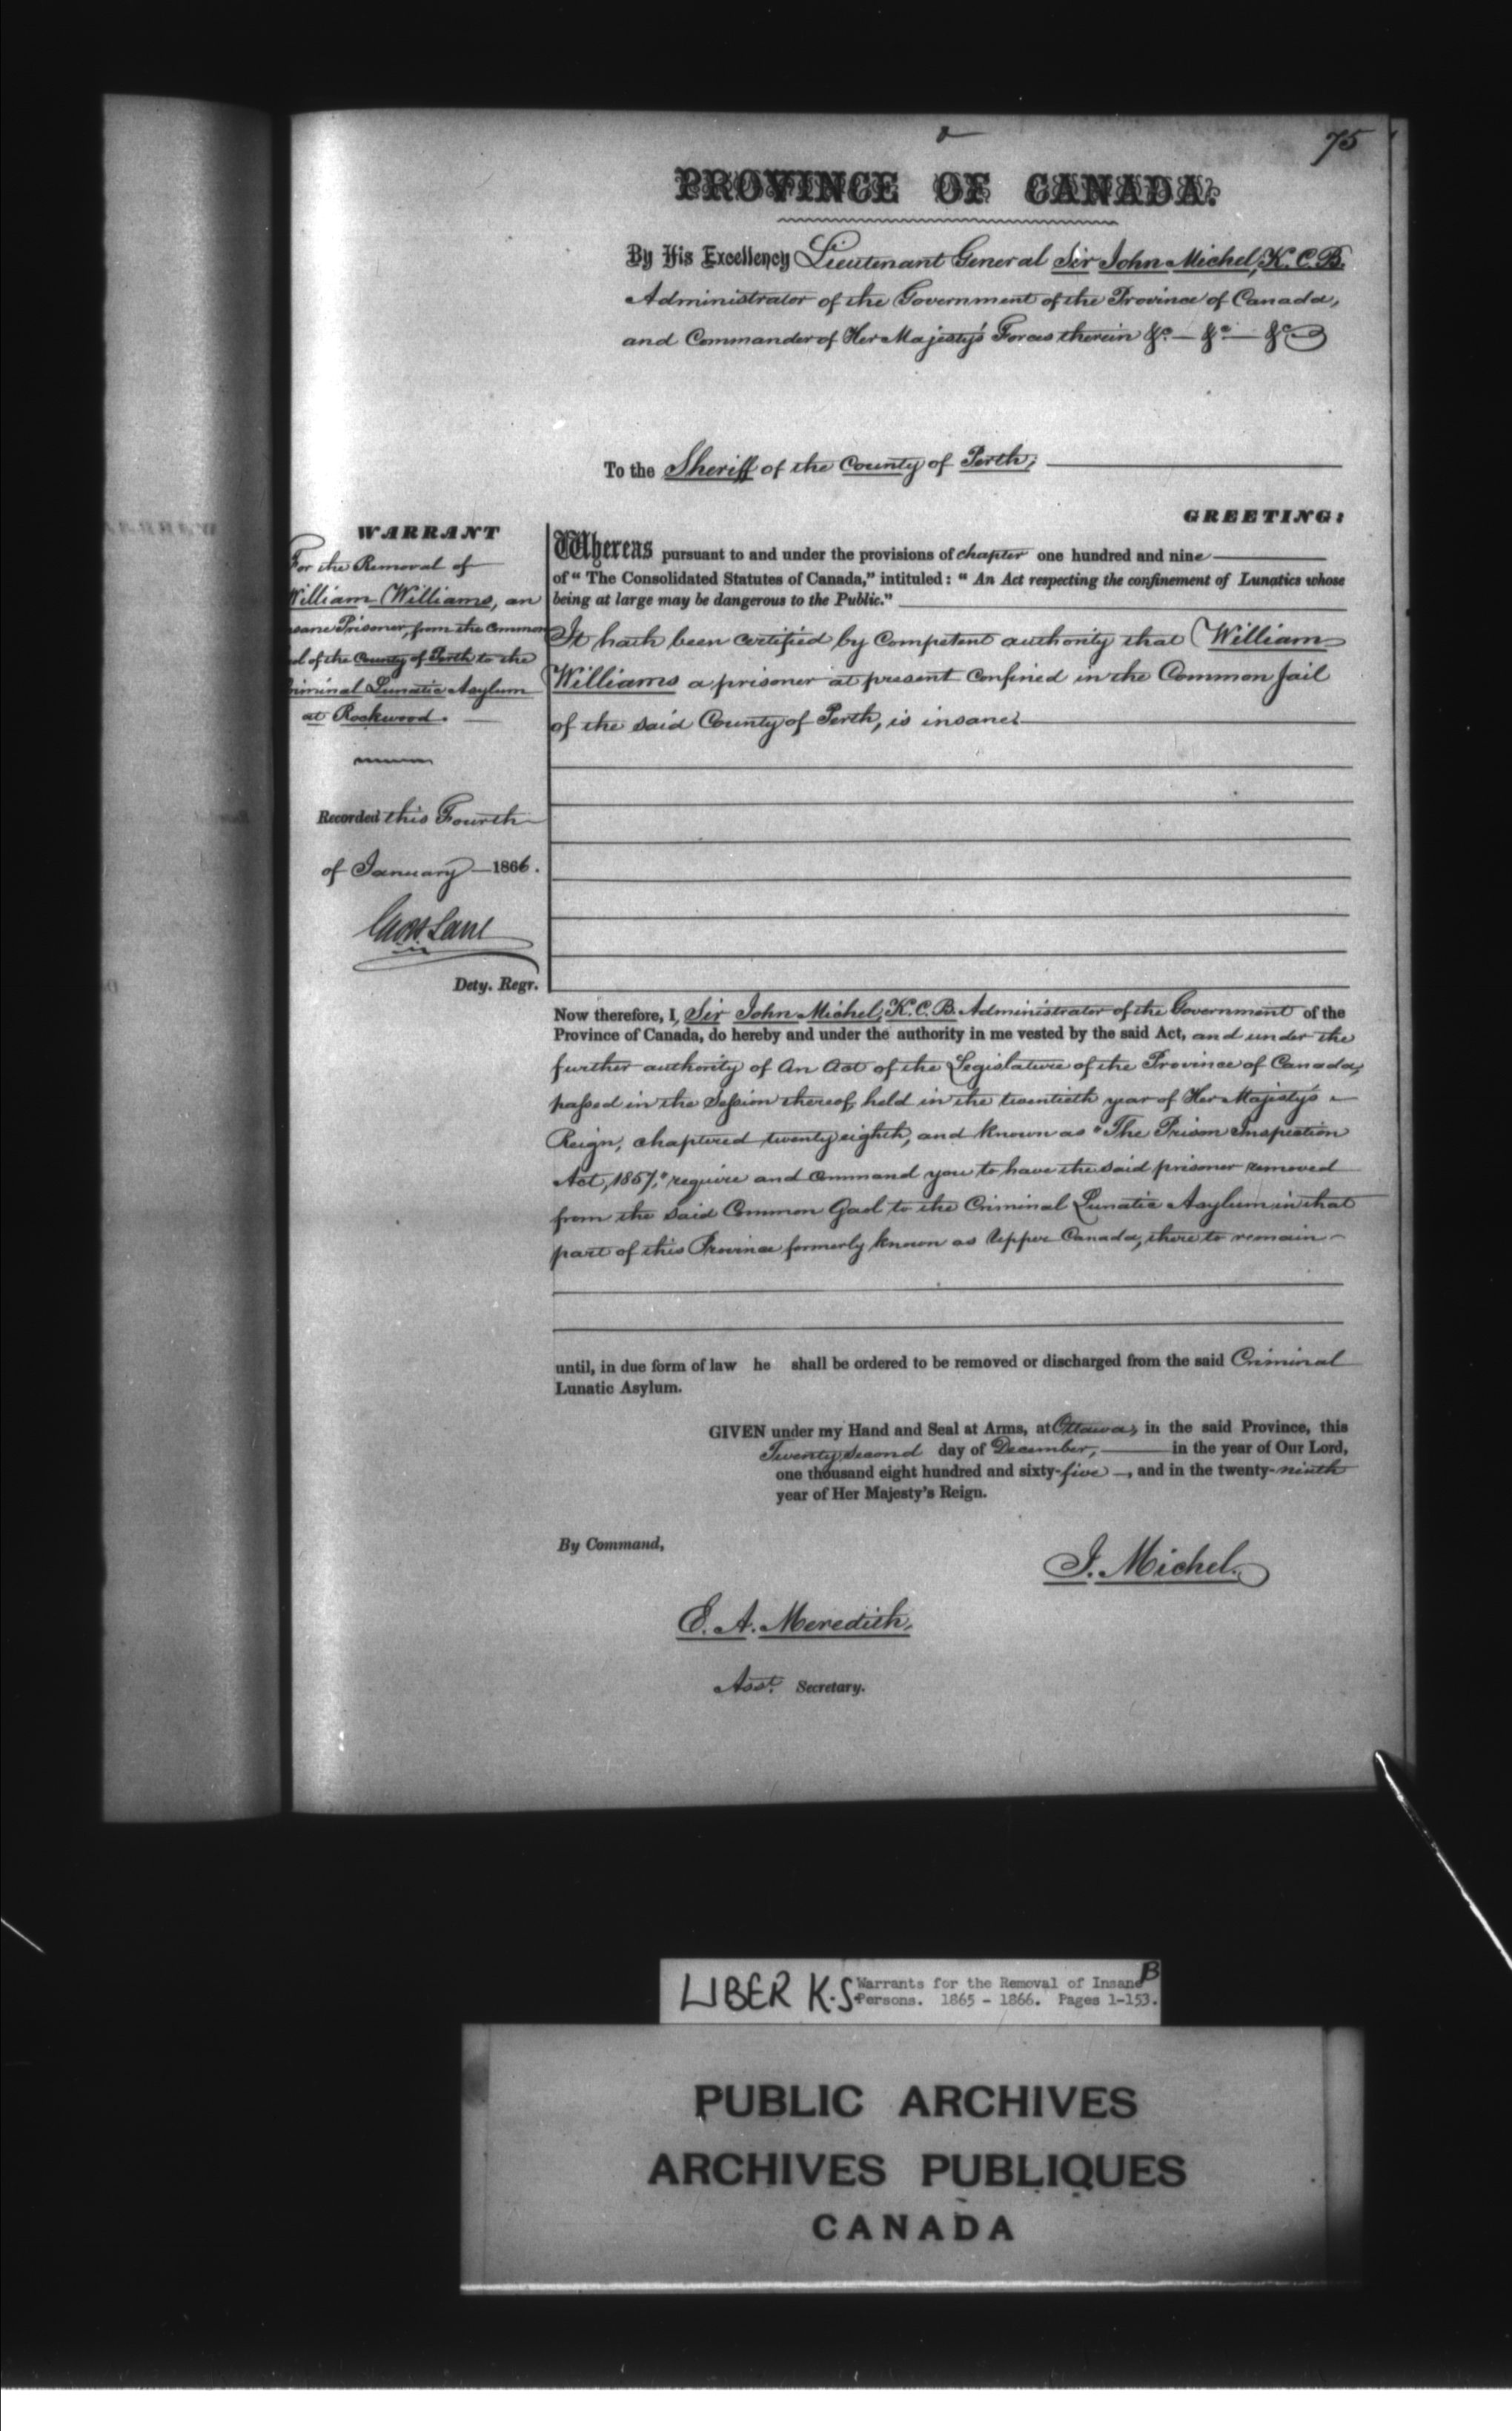 75
PROVINCE OF CANADA.
By His Excellency Lieutenant General Sir John Michel, K.C.B.
Administrator of the Government of the Province of Canada,
and Commander of Her Majesty's Forces therein &c — &c — &c
To the Sheriff of the County of Perth;
GREETING:
WARRANT
For the Removal of
William Williams, an
nsane Prisoner, from the Common
ol of the County of Perth to the
riminal Lunatic Asylum
at Rockwood.
Recorded this Fourth
of January — 1866.
Dety. Regr.
Whereas pursuant to and under the provisions of chapter one hundred and nine
of “ The Consolidated Statutes of Canada,” intituled : “ An Act respecting the confinement of Lunatics whose
being at large may be dangerous to the Public.”
It hath been certified by Competent authority that William
Williams a prisoner at present confined in the Common Jail
of the said County of Perth, is insane:
Now therefore, I, Sir John Michel, K.C.B. Administrator of the Government of the
Province of Canada, do hereby and under the authority in me vested by the said Act, and under the
further authority of An Act of the Legislature of the Province of Canada,
passed in the Session thereof, held in the twentieth year of Her Majesty's
Reign, chaptered twenty eighth, and known as "The Prison Inspection
Act, 1857," require and command you to have the said prisoner removed
from the said Common Gaol to the Criminal Lunatic Asylum in that
part of this Province formerly known as Upper Canada, there to remain
until, in due form of law he shall be ordered to be removed or discharged from the said Criminal
Lunatic Asylum.
GIVEN under my Hand and Seal at Arms, at Ottawa, in the said Province, this
Twenty second day of December, in the year of Our Lord,
one thousand eight hundred and sixty-five —, and in the twenty-ninth
year of Her Majesty's Reign.
By Command,
J. Michel.
E. A. Meredith,
Asst. Secretary.
LIBER K.S. Warrants for the Removal of Insane B
Persons. 1865 - 1866. Pages 1-153.
PUBLIC ARCHIVES
ARCHIVES PUBLIQUES
CANADA